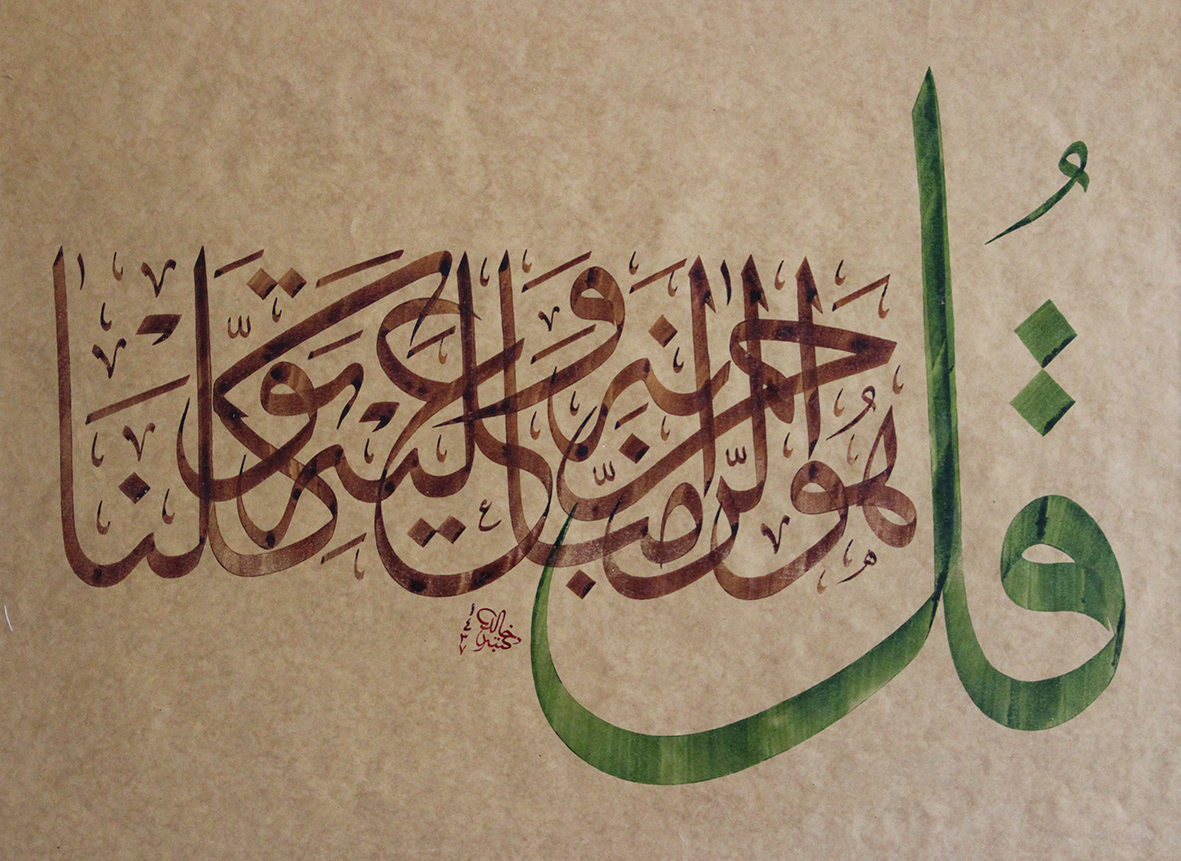 قُل هُوَ الرَّحْمَٰنُ آمَنَّا بِهِ وَعَلَيْهِ تَوَكَّلْنَا